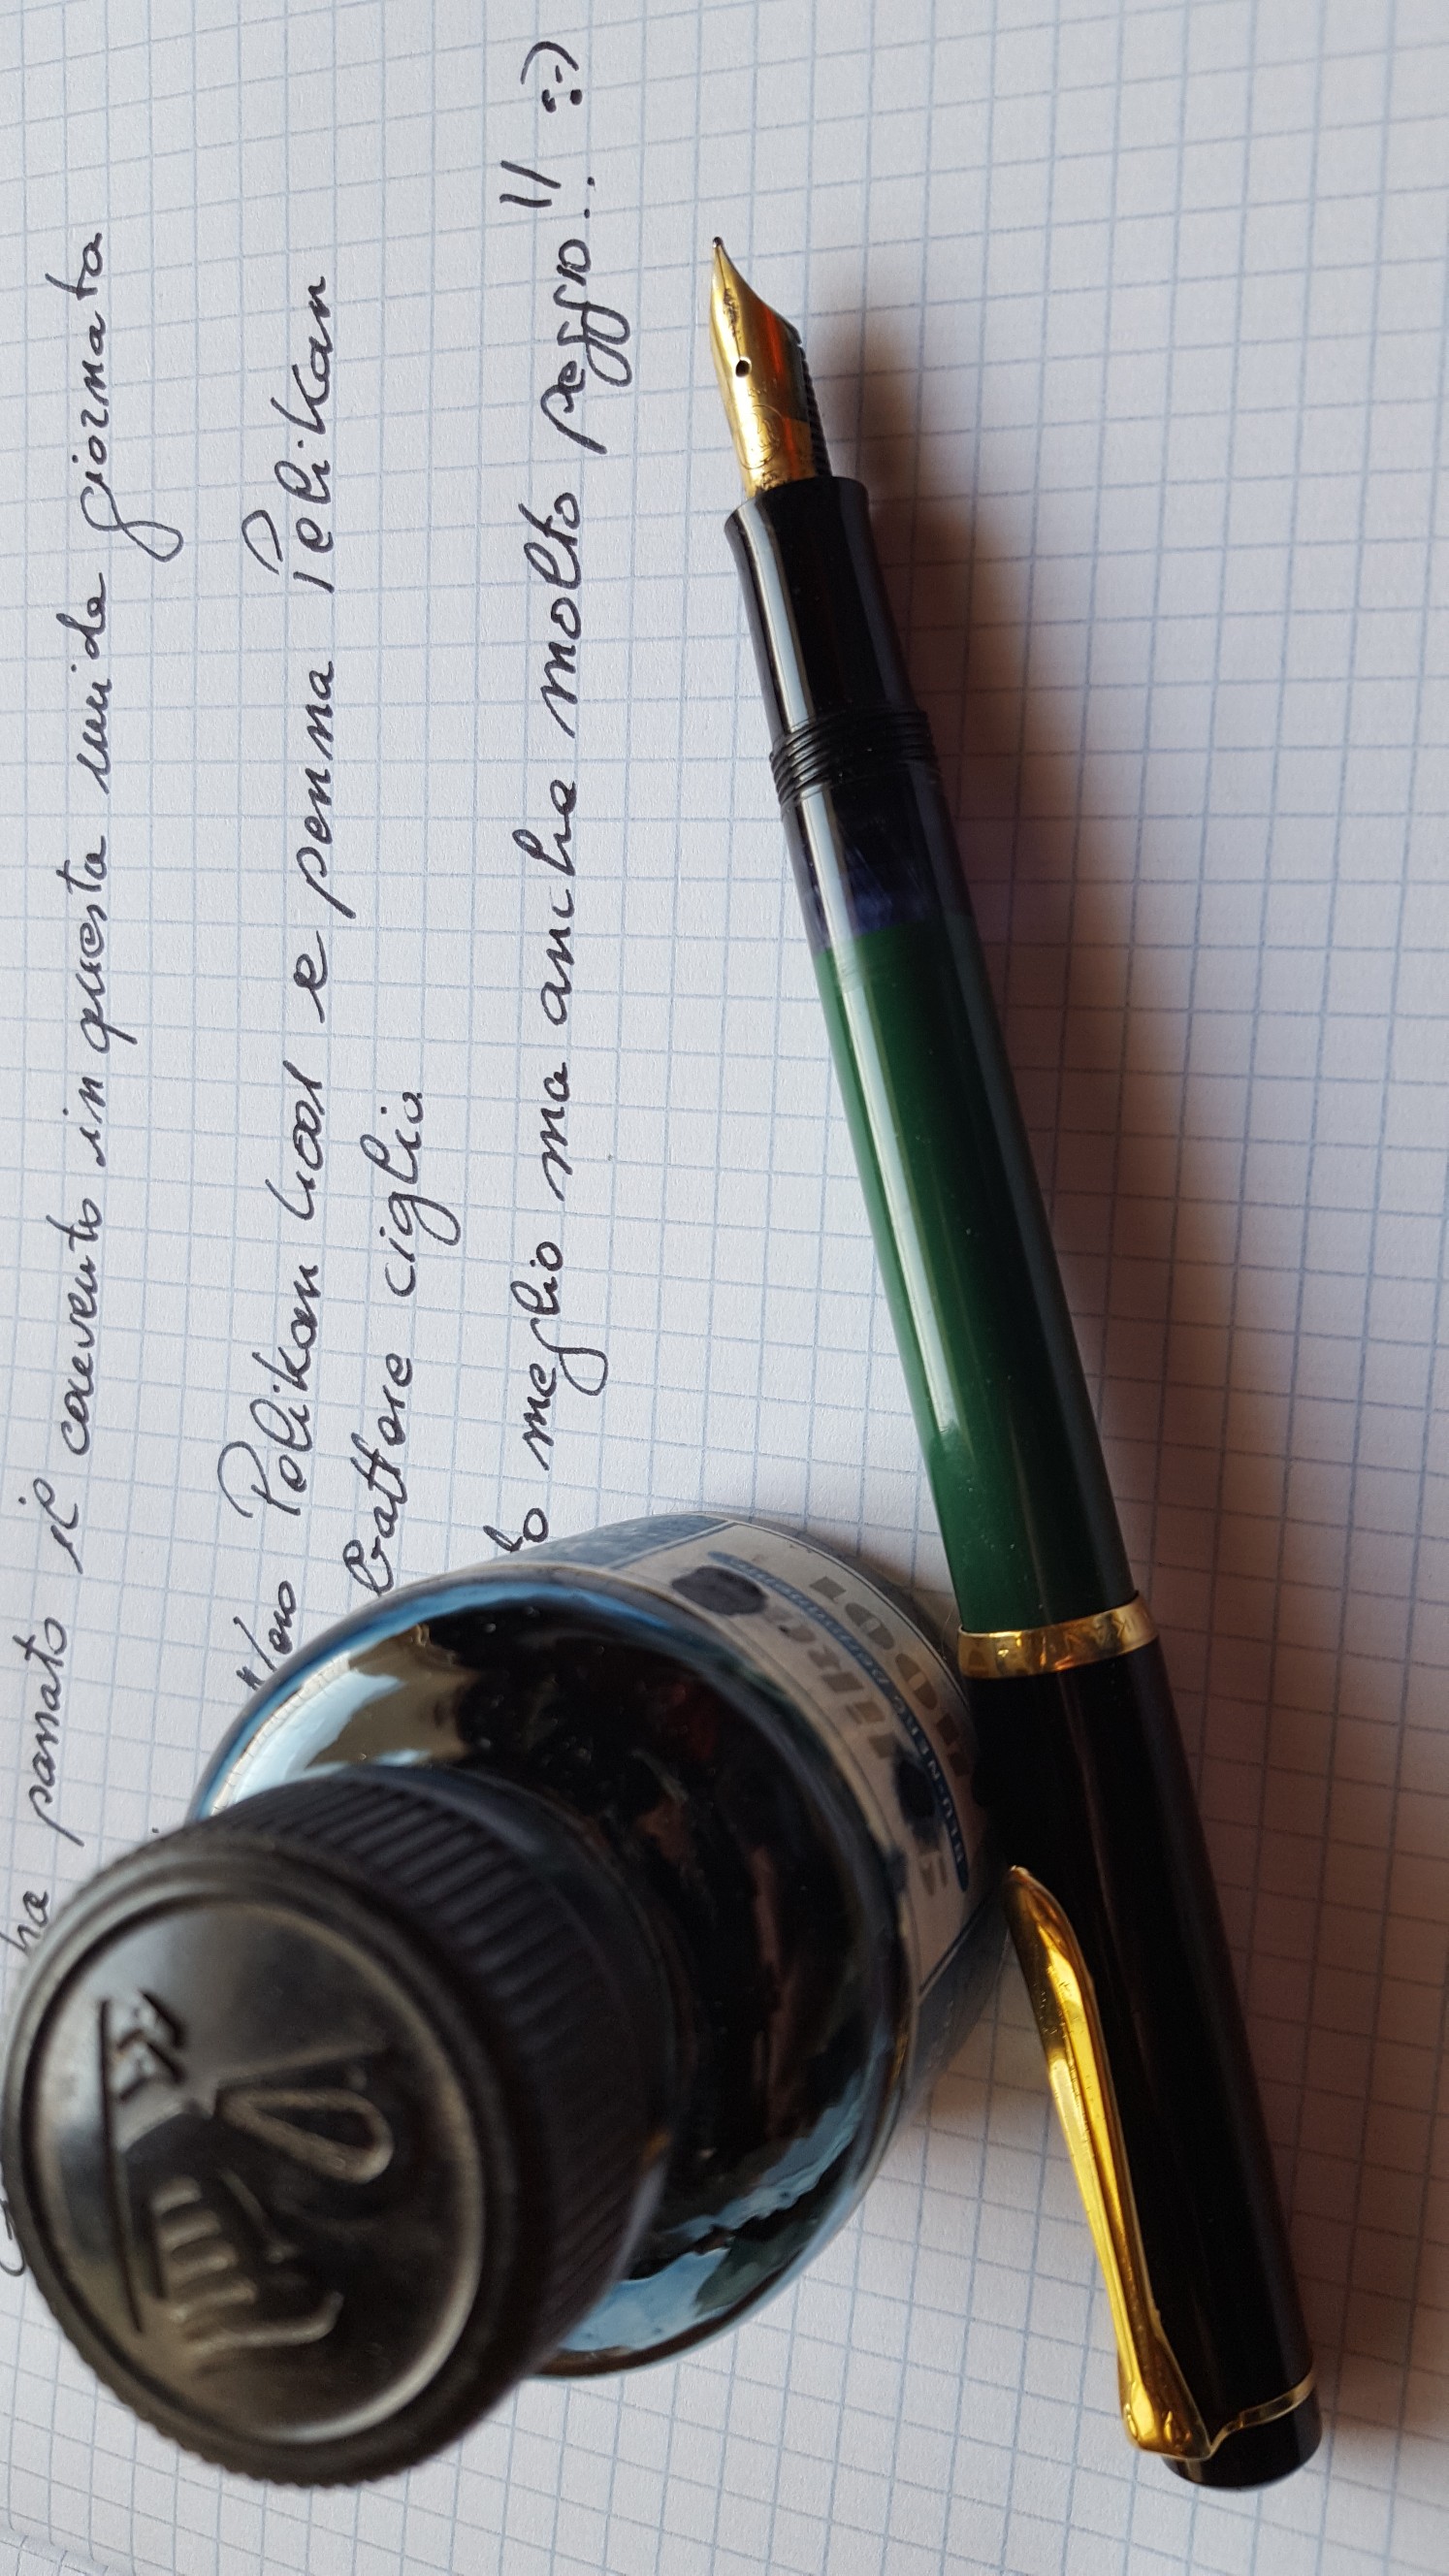 ha passato il convento in questa umida giornata
Nero Pelikan 4001 e penna Pelikan
battere ciglio
to meglio ma anche molto peggio!! :-)
4001
KAN